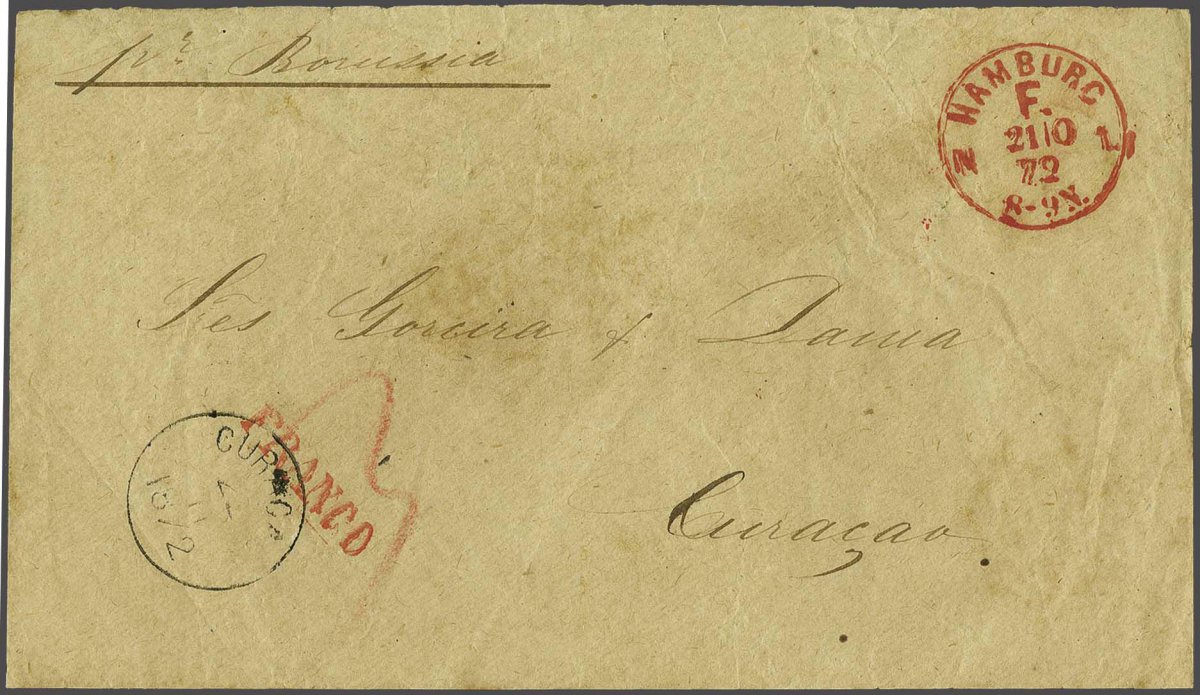 pr. Borussia
HAMBURG
F.
21 10
72
8-9 N.
N 1.
Sres Gorsira & Dania
FRANCO
CURAÇAO
1872
Curaçao